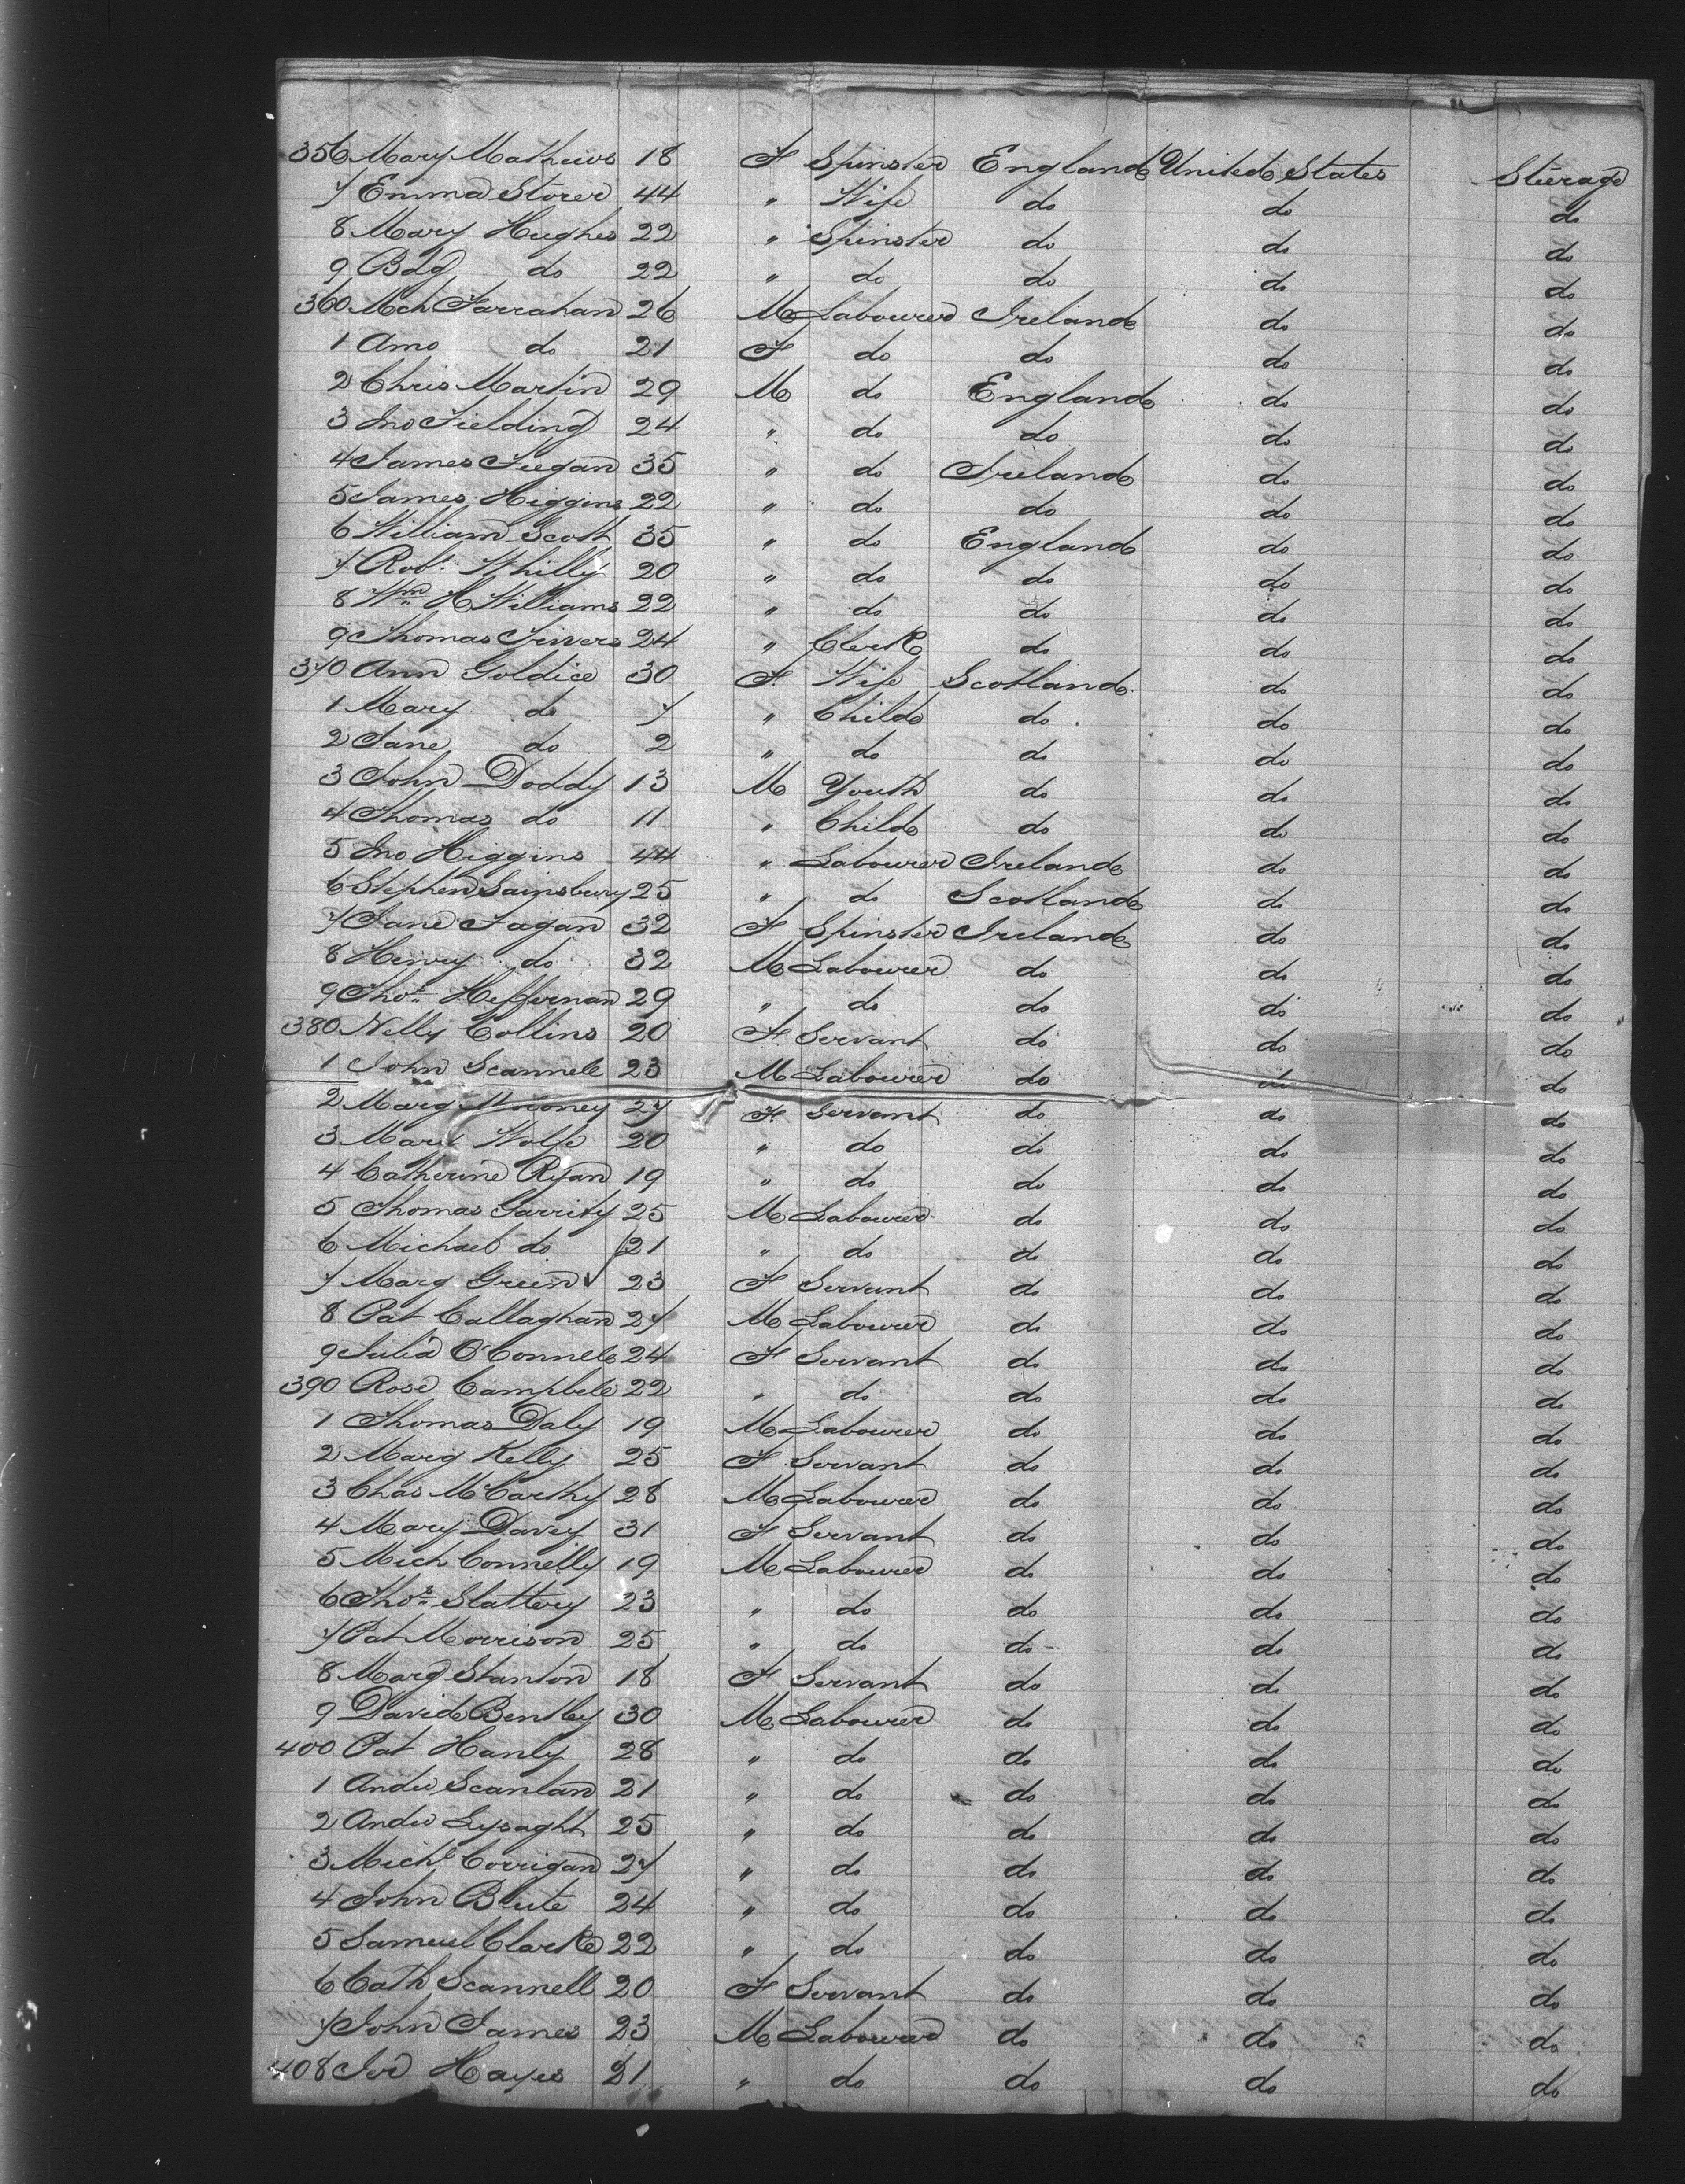 356 Mary Mathews 18 F Spinster England United States Steerage
7 Emma Storer 44 " Wife do do do
8 Mary Hughes 22 " Spinster do do do
9 Bdg do 22 " do do do do
360 Mch Farrahan 26 M Labourer Ireland do do
1 Ann do 21 F do do do do
2 Chris Martin 29 M do England do do
3 Jno Fielding 24 " do do do do
4 James Feegan 35 " do Ireland do do
5 James Higgins 22 " do do do do
6 William Scott 35 " do England do do
7 Robt Whilly 20 " do do do do
8 Wm H Williams 22 " do do do do
9 Thomas 24 " Clerk do do do
370 Ann Goldice 30 F. Wife Scotland do do
1 Mary do 7 " Child do do do
2 Jane do 2 " do do do do
3 John Doddy 13 M Youth do do do
4 Thomas do 11 " Child do do do
5 Jno Higgins 44 " Labourer Ireland do do
6 Stephen Sainsbury 25 " do Scotland do do
7 Jane Fagan 32 F Spinster Ireland do do
8 Henry do 32 M Labourer do do do
9 Thos Heffernan 29 " do do do do
380 Nelly Collins 20 F Servant do do do
1 John Scannell 23 M Labourer do do do
2 Marg Mooney 27 F Servant do do do
3 Mary Wolfe 20 " do do do do
4 Catherine Ryan 19 " do do do do
5 Thomas Garrity 25 M Labourer do do do
6 Michael do 21 " do do do do
7 Marg Green 23 F Servant do do do
8 Pat Callaghan 27 M Labourer do do do
9 Julia O'Connell 24 F Servant do do do
390 Rose Campbell 22 " do do do do
1 Thomas Daly 19 M Labourer do do do
2 Marg Kelly 25 F Servant do do do
3 Chas McCarthy 28 M Labourer do do do
4 Mary Davey 31 F Servant do do do
5 Mich Connelly 19 M Labourer do do do
6 Thos Slattery 23 " do do do do
7 Pat Morrison 25 " do do do do
8 Marg Stanton 18 F Servant do do do
9 David Bentley 30 M Labourer do do do
400 Pat Hanly 28 " do do do do
1 Andw Scanlan 21 " do do do do
2 Andw Lysaght 25 " do do do do
3 Michl Corrigan 27 " do do do do
4 John Blute 24 " do do do do
5 Samuel Clarke 22 " do do do do
6 Cath Scannell 20 F Servant do do do
7 John James 23 M Labourer do do do
408 Jer Hayes 21 " do do do do